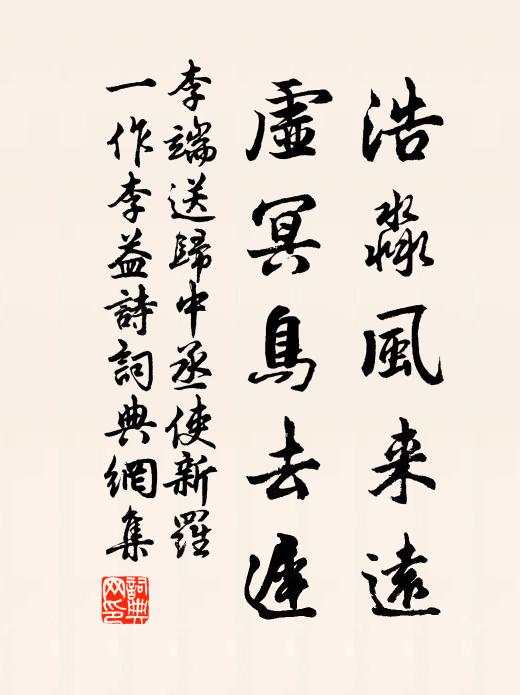 浩淼風来遠
虛冥鳥去遲
李端送歸中丞使新羅
一作李益詩詞典網集
詞典
网印